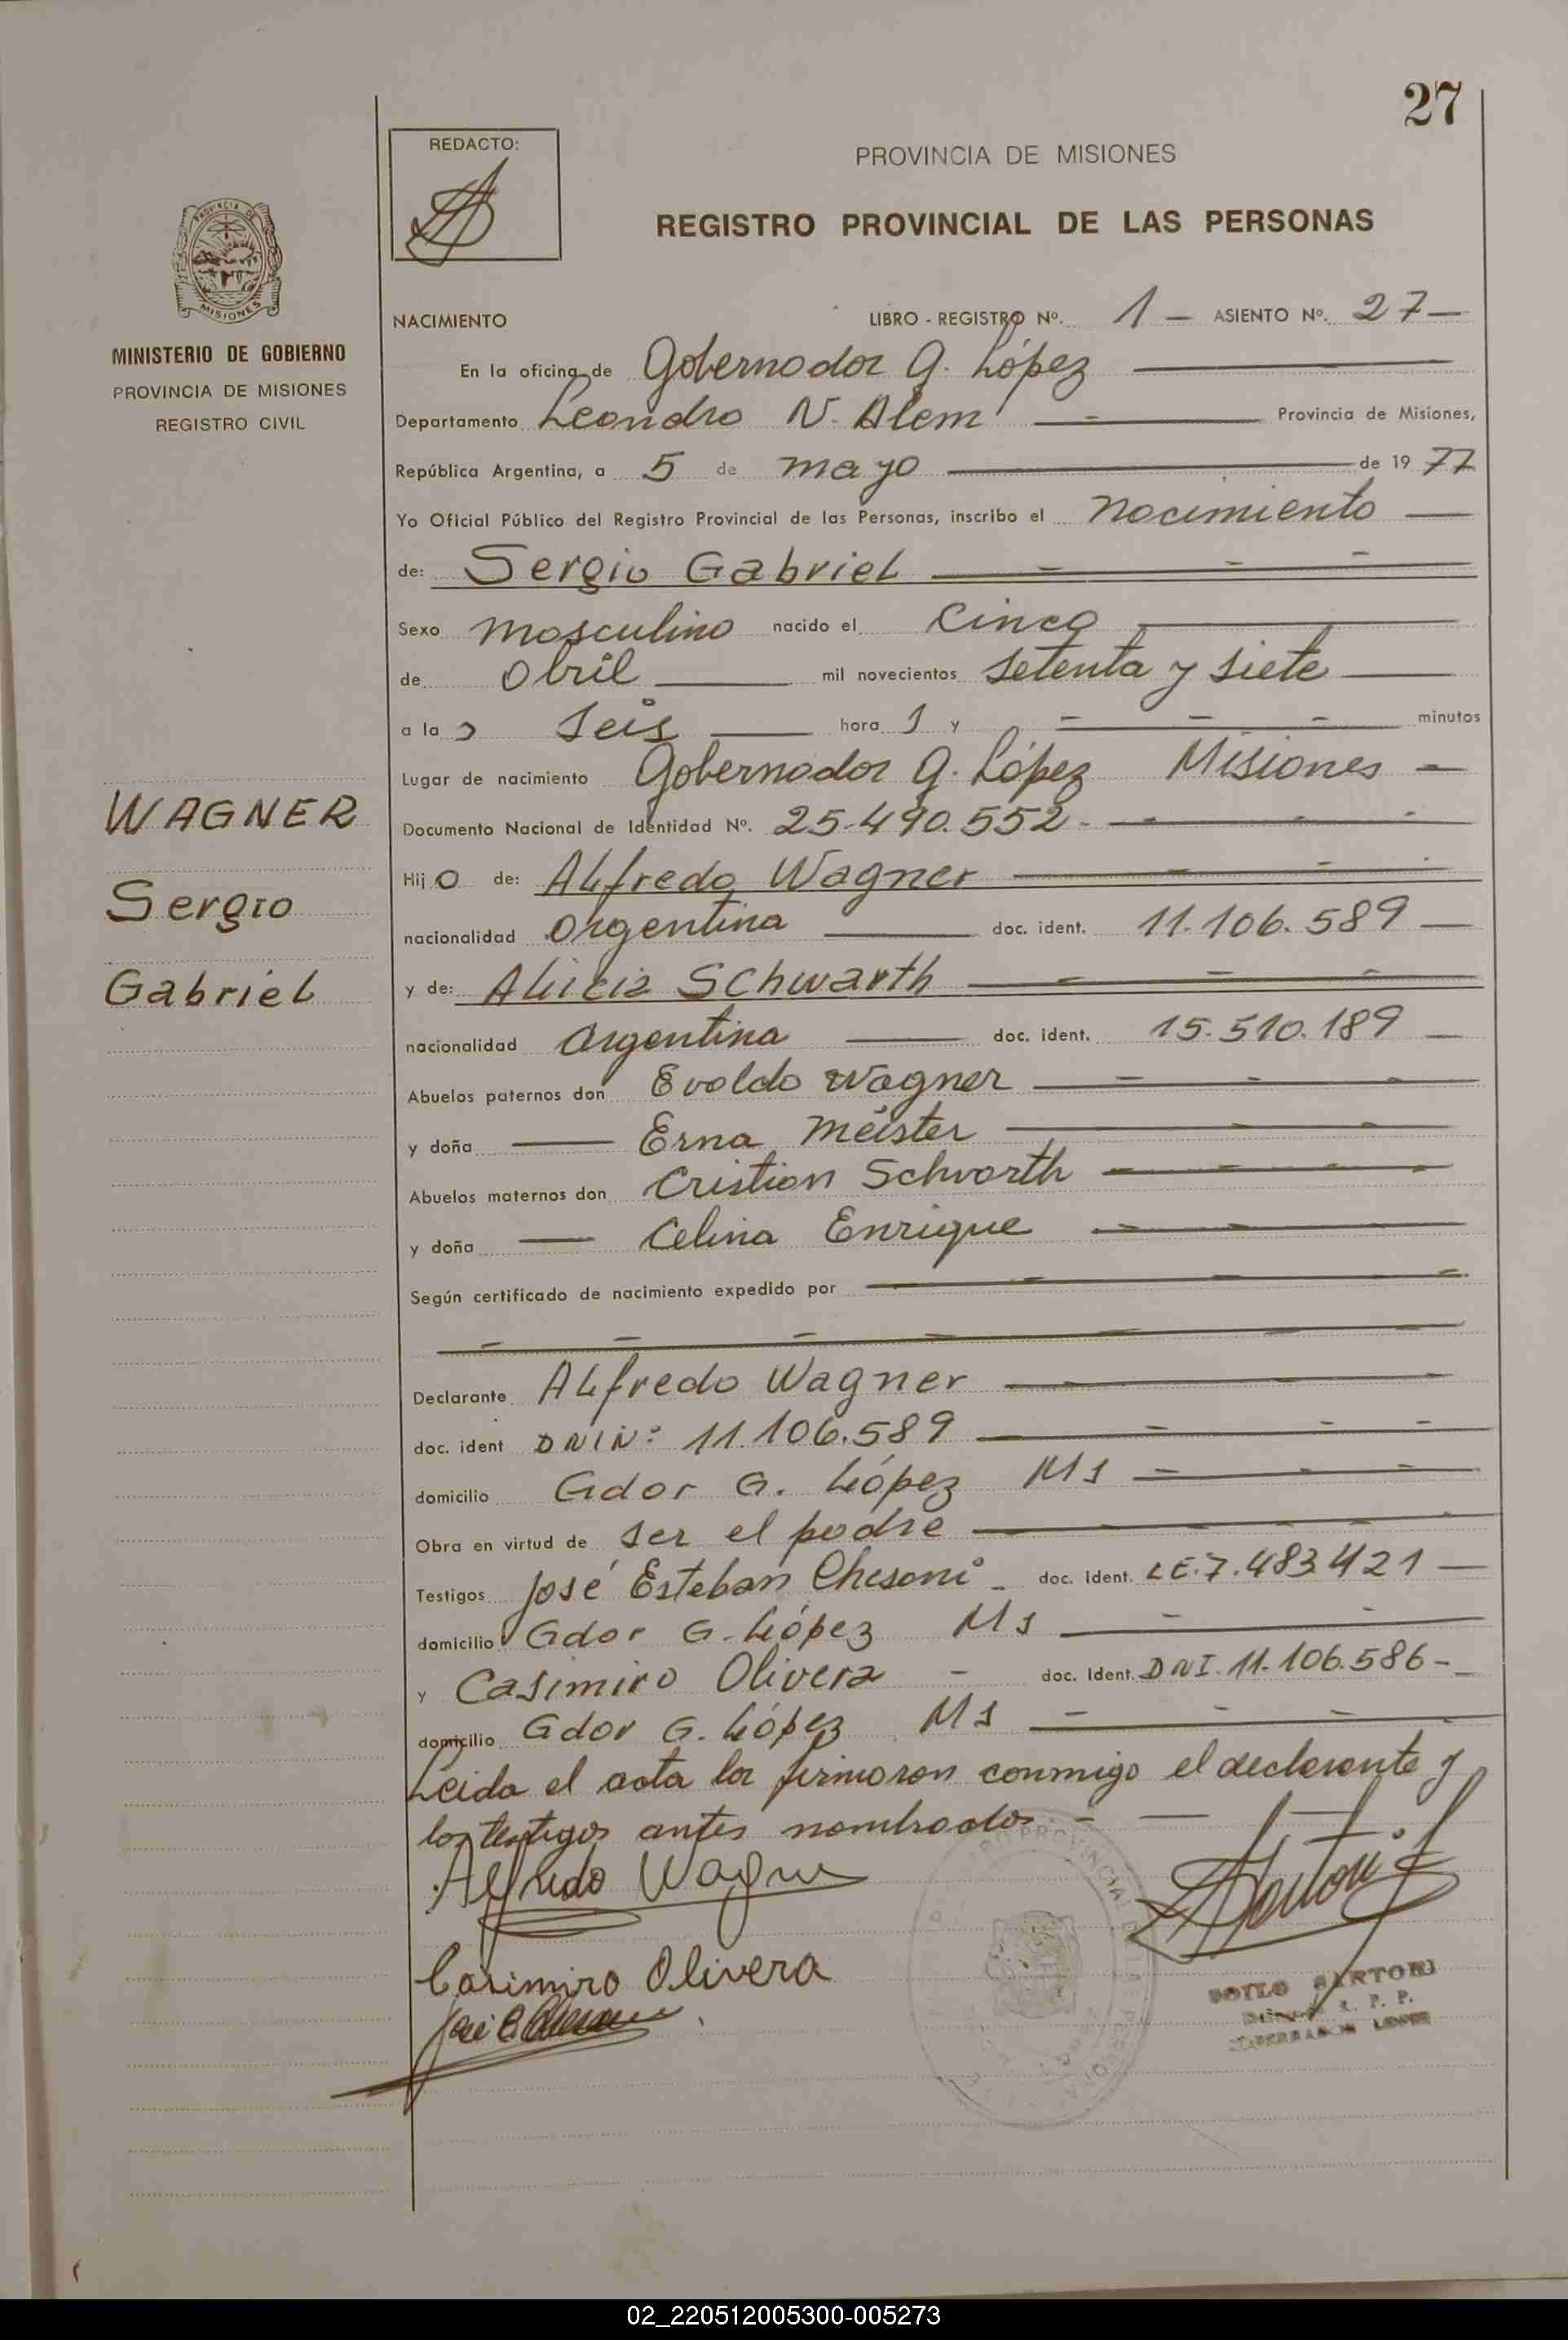 27
REDACTO:
PROVINCIA DE MISIONES
REGISTRO PROVINCIAL DE LAS PERSONAS
MISIONES
MINISTERIO DE GOBIERNO
PROVINCIA DE MISIONES
REGISTRO CIVIL
NACIMIENTO LIBRO - REGISTRO Nº. 1 — ASIENTO Nº. 27 —
En la oficina de Gobernador G. López
Departamento Leandro N. Alem Provincia de Misiones,
República Argentina, a 5 de mayo de 19 77
Yo Oficial Público del Registro Provincial de las Personas, inscribo el Nacimiento
de: Sergio Gabriel
Sexo masculino nacido el cinco
de abril mil novecientos setenta y siete
a la s seis hora s y minutos
Lugar de nacimiento Gobernador G. López Misiones
Documento Nacional de Identidad Nº. 25.490.552
WAGNER
Sergio
Gabriel
Hij o de: Alfredo Wagner
nacionalidad Argentina doc. ident. 11.106.589
y de: Alicia Schwarth
nacionalidad Argentina doc. ident. 15.510.189
Abuelos paternos don Evaldo Wagner
y doña Erna Meister
Abuelos maternos don Cristian Schwarth
y doña Celina Enrique
Según certificado de nacimiento expedido por
Declarante Alfredo Wagner
doc. ident DNI Nº 11.106.589
domicilio Gdor G. López Ms
Obra en virtud de ser el padre
Testigos José Esteban Chesani doc. ident. LE.7.483.421
domicilio Gdor G. López Ms
y Casimiro Olivera doc. Ident. DNI. 11.106.586
domicilio Gdor G. López Ms
Leida el acta la firmaron conmigo el declarante y
los testigos antes nombrados
Alfredo Wagner
Casimiro Olivera
SARTORI
R. P. P.
02_220512005300-005273